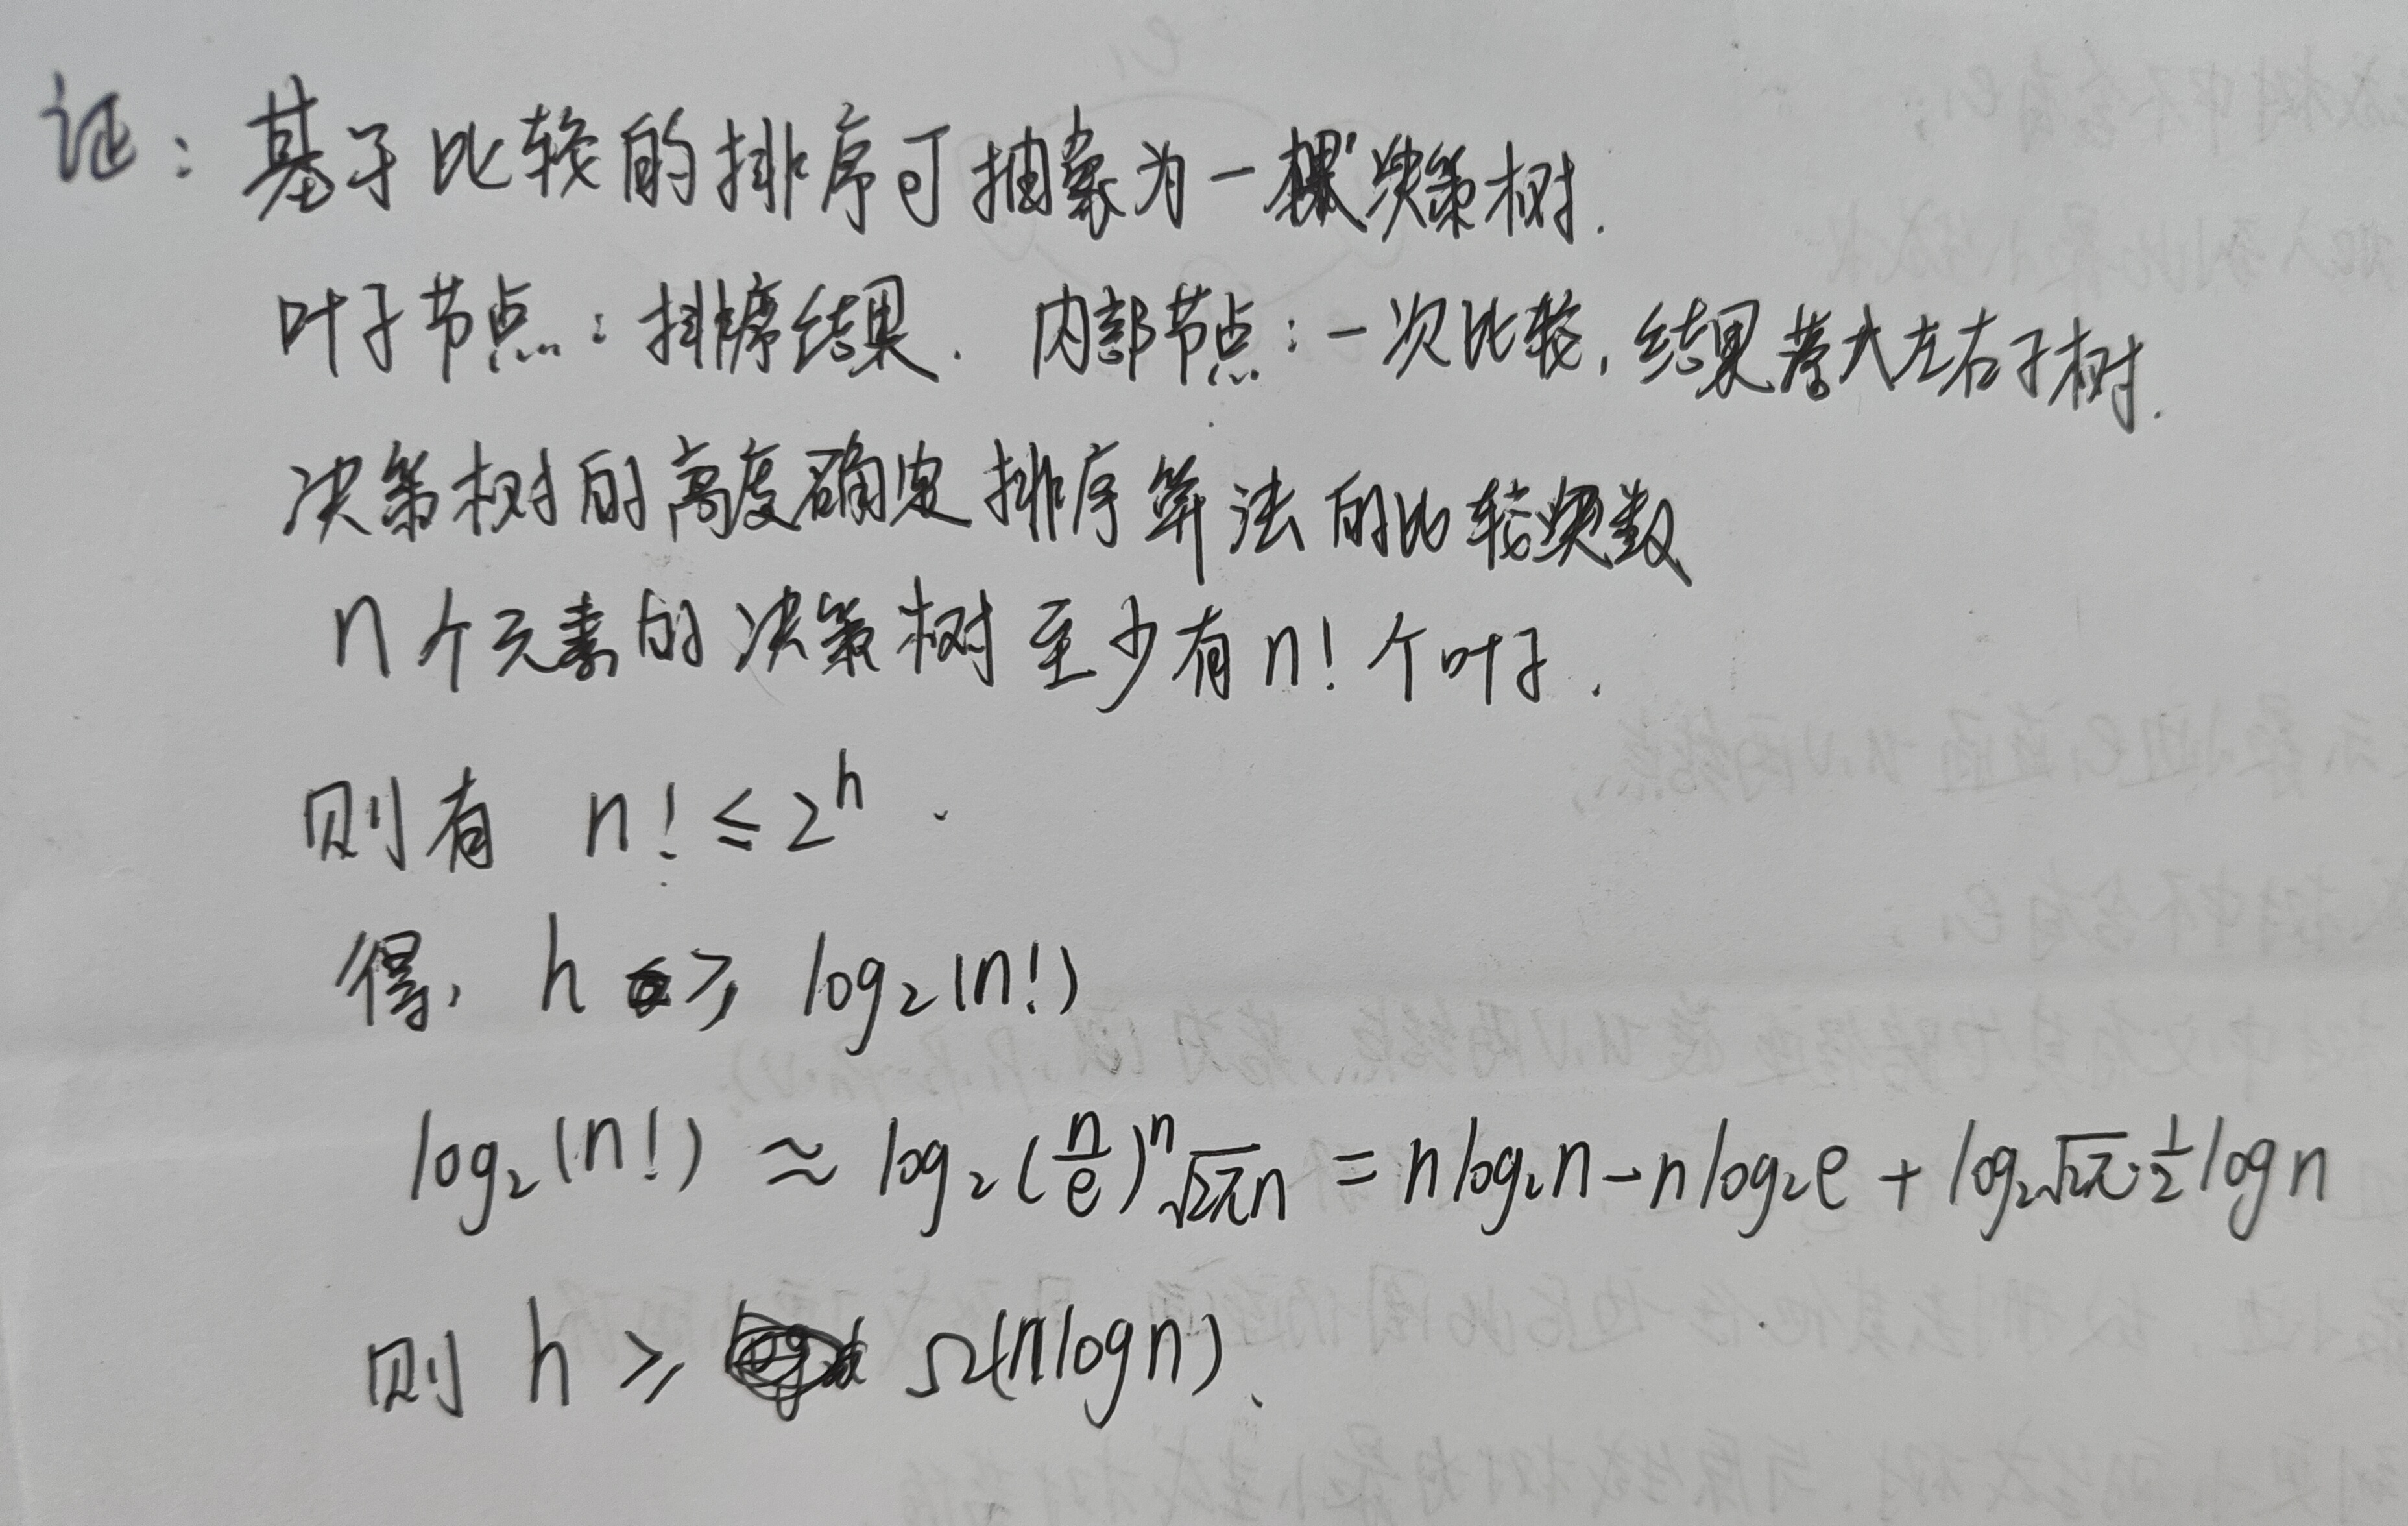 证：基于比较的排序可抽象为一棵决策树.
叶子节点：排序结果. 内部节点：一次比较, 结果落入左右子树.
决策树的高度确定排序算法的比较次数
n个元素的决策树至少有n!个叶子.
则有 n! ≤ 2^h.
得, h ≥ log₂(n!)
log₂(n!) ≈ log₂(n/e)^n √2π n = n log₂n - n log₂e + log₂√2π·½ log n
则 h ≥ Ω(n log n).